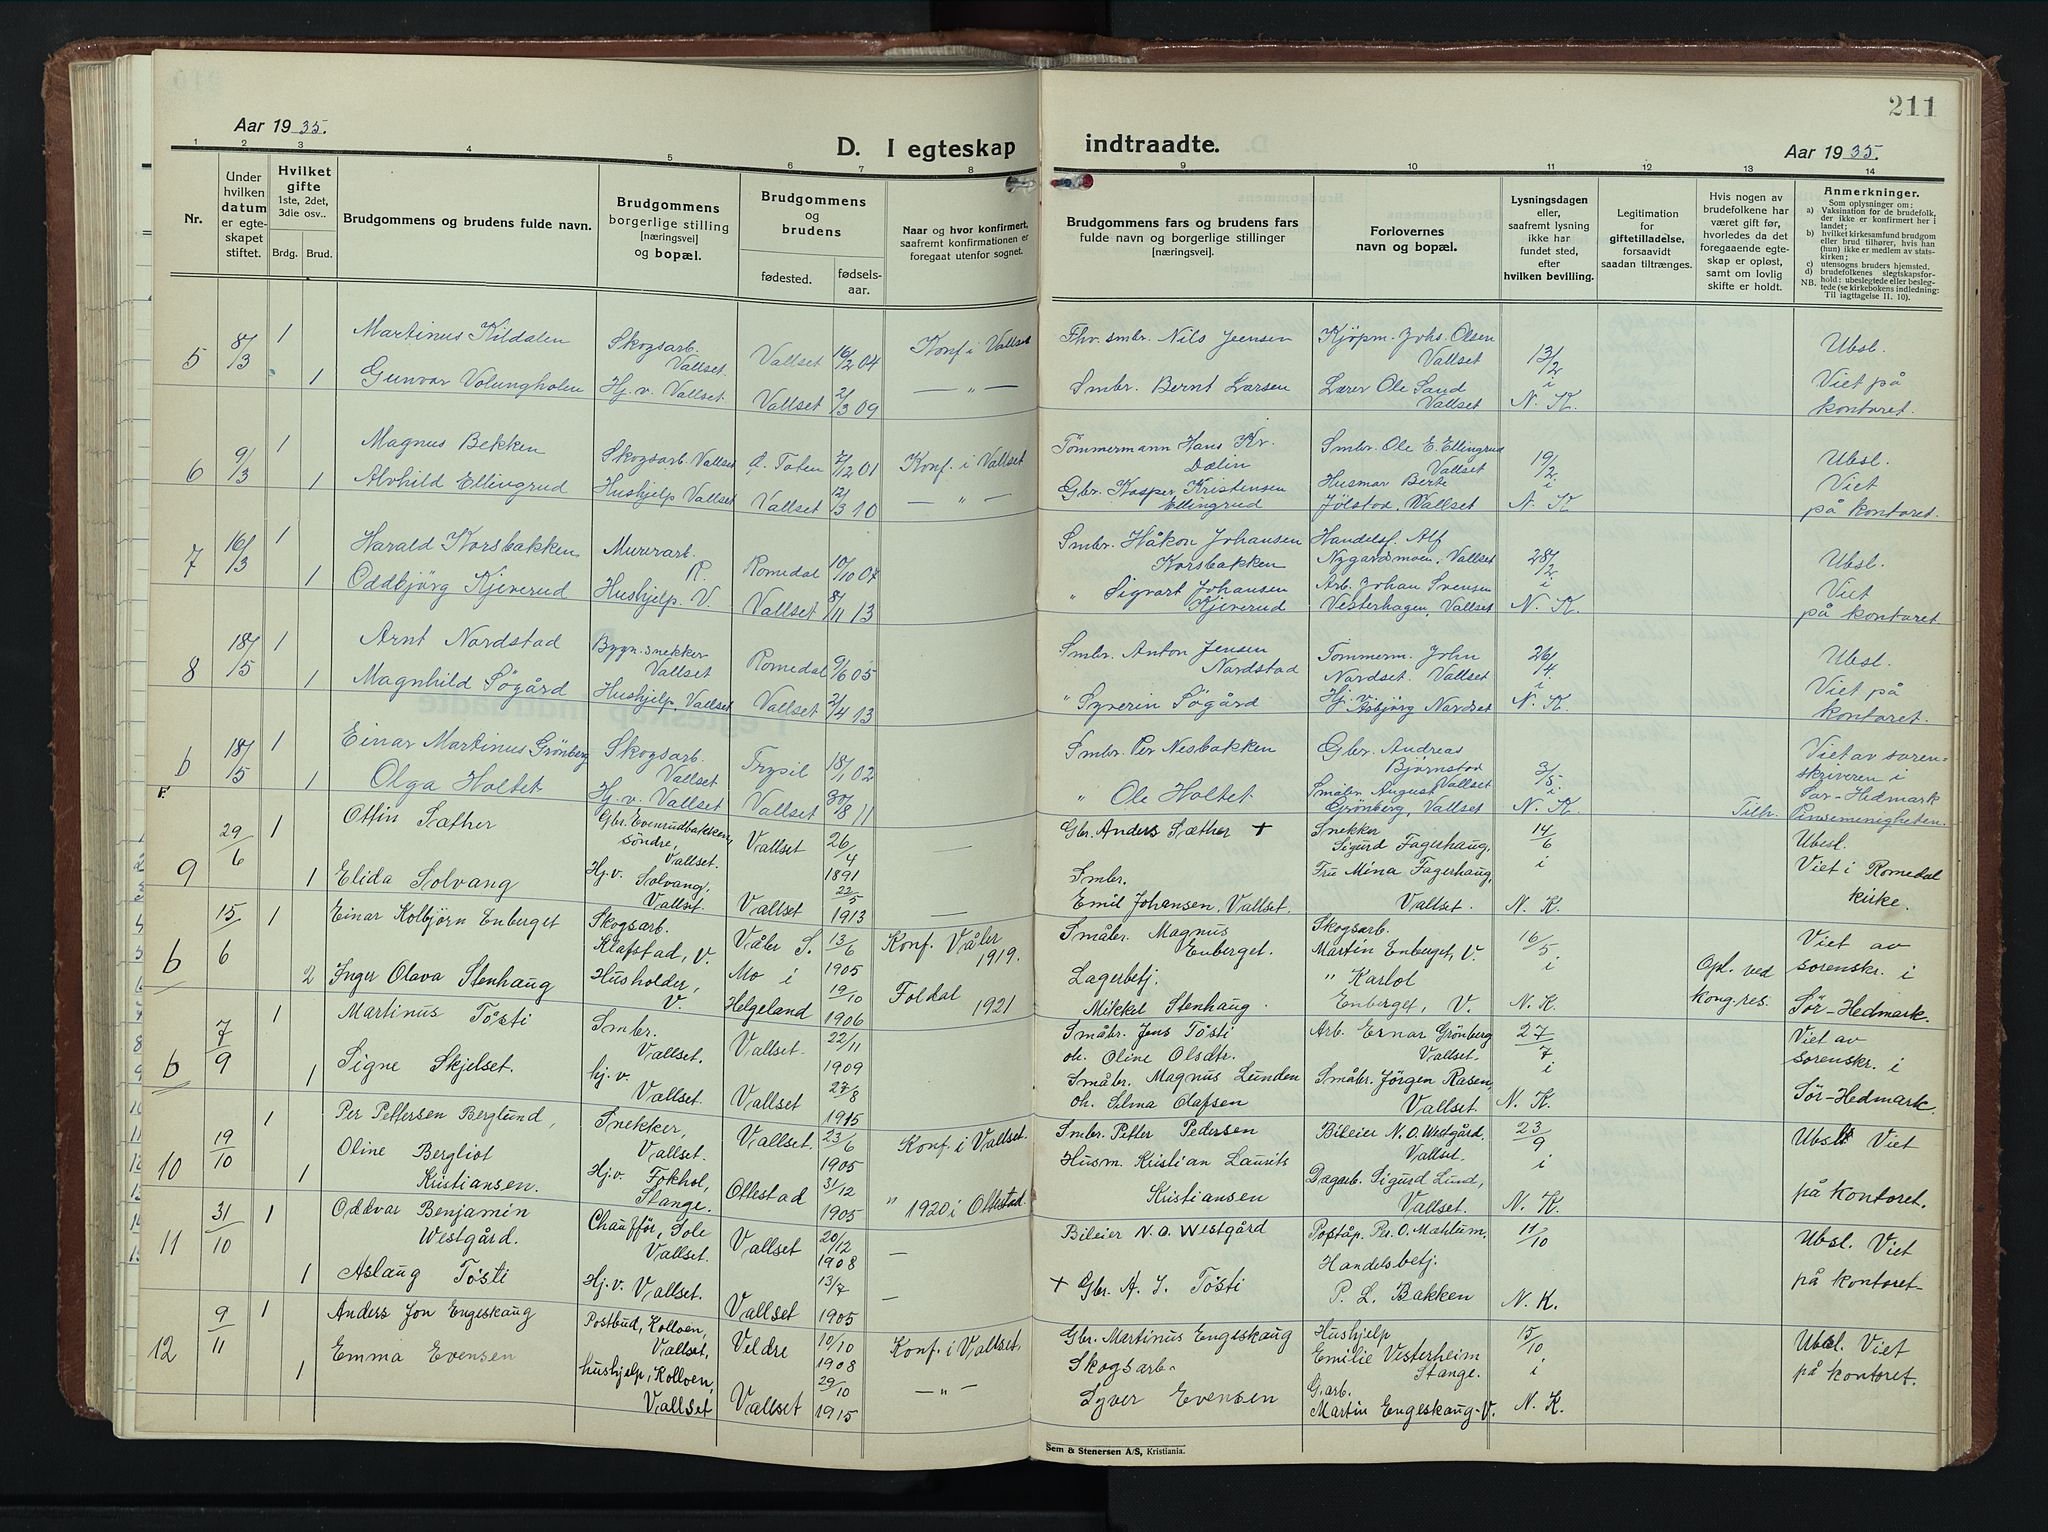 211
Aar 1935.
D. I egteskap indtraadte.
Aar 1935.
1 2 3 4 5 6 7 8 9 10 11 12 13 14
Nr.
Under hvilken datum er egteskapet stiftet.
Hvilket gifte 1ste, 2det, 3die osv..
Brdg. Brud.
Brudgommens og brudens fulde navn.
Brudgommens borgerlige stilling [næringsvei] og bopæl.
Brudgommens og brudens
fødested. fødselsaar.
Naar og hvor konfirmert, saafremt konfirmationen er foregaat utenfor sognet.
Brudgommens fars og brudens fars fulde navn og borgerlige stillinger [næringsvei].
Forlovernes navn og bopæl.
Lysningsdagen eller, saafremt lysning ikke har fundet sted, efter hvilken bevilling.
Legitimation for giftetilladelse, forsaavidt saadan tiltrænges.
Hvis nogen av brudefolkene har været gift før, hvorledes da det foregaaende egteskap er opløst, samt om lovlig skifte er holdt.
Anmerkninger.
Som oplysninger om:
a) Vaksination for de brudefolk, der ikke er konfirmert her i landet;
b) hvilket kirkesamfund brudgom eller brud tilhører, hvis han (hun) ikke er medlem av statskirken;
c) utensogns bruders hjemsted.
d) brudefolkenes slegtskapsforhold: ubeslegtede eller beslegtede (se kirkebokens indledning: Til iagttagelse II. 10).
NB.
5 8/3 1 Martinus Kildalen Skogsarb. Vallset. Vallset 16/2 04 Konf i Vallset Fhv. smbr. Nils Jensen Kjøpm. Johs. Olsen Vallset 13/2 i N. K. Ubsl. Viet på kontoret.
1 Gunvor Volungholen Hj. v. Vallset. Vallset 2/3 09 — " — Smbr. Bernt Larsen Lærer Ole Sand Vallset
6 9/3 1 Magnus Bekken Skogsarb. Vallset Ø. Toten 7/12 01 Konf. i Vallset Tømmermann Hans Kr. Dælin Smbr. Ole E. Ellingrud Vallset 19/2 i N. K Ubsl. Viet på kontoret.
1 Alvhild Ellingrud Hushjelp Vallset Vallset 12/3 10 — " — Gbr. Kasper Kristensen Ellingrud Husmor Berte Jølstad, Vallset
7 16/3 1 Harald Korsbakken Murerarb. R. Romedal 10/10 07 Smbr. Håkon Johansen Korsbakken Handelsf. Alf Nygardsmoen, Vallset 28/2 i N. K. Ubsl. Viet på kontoret.
1 Oddbjörg Kjeverud Hushjelp V. Vallset 8/11 13 " Sigvart Johansen Kjeverud Arb. Johan Svensen Vesterhagen, Vallset
8 18/5 1 Arnt Nordstad Bygn.snekker Vallset Romedal 9/6 05 Smbr. Anton Jensen Nordstad Tømmerm. John Nordset. Vallset 26/4 i N. K. Ubsl. Viet på kontoret.
1 Magnhild Søgård Hushjelp, Vallset Vallset 2/4 13 " Syverin Søgård Hj. v. Asbjörg Nordset
b 18/5 1 Einar Martinus Grönberg Skogsarb. Vallset Trysil 18/1 02 Smbr. Per Nesbakken Gbr. Andreas Bjørnstad Vallset 3/5 i N. K. Viet av sorenskriveren i Sør-Hedmark
F. 1 Olga Holtet Hj. v. Vallset Vallset 30/8 11 " Ole Holtet Småbr August Grönberg, Vallset Tilh. Pinsemenigheten.
9 29/6 1 Ottin Sæther Gbr. Evenrudbakken söndre, Vallset. Vallset 26/4 1891 — Gbr. Anders Sæther + Snekker Sigurd Fagerhaug, 14/6 i N. K. Ubesl. Viet i Romedal kirke.
1 Elida Solvang Hj.v. Solvang, Vallset. Vallset 22/5 1913 — Smbr. Emil Johansen, Vallset. Fru Mina Fagerhaug, Vallset.
b 15/6 1 Einar Kolbjörn Enberget Skogsarb. Klafstad, V. Våler S. 13/6 1905 Konf. Våler 1919. Småbr. Magnus Enberget. Skogsarb. Martin Enberget, V. 16/5 i N. K. Viet av sorenskr. i Sør-Hedmark.
2 Inger Olava Stenhaug Husholder, V. Mo i Helgeland 19/10 1906 Foldal 1921 Lagerbetj. Mikkel Stenhaug. " Karlot Enberget, V. Opl. ved kong. res.
b 7/9 1 Martinus Tösti Smbr. Vallset. Vallset. 22/11 1909 Småbr. Jens Tösti oh. Oline Olsdtr. Arb. Ernar Grönberg Vallset. 27/7 i N. K. Viet av sorenskr. i Sør-Hedmark.
1 Signe Skjelset. hj. v. Vallset. Vallset 27/8 1915 Småbr. Magnus Lunden oh. Silma Olafsen Småbr. Jörgen Rasen, Vallset.
10 19/10 1 Per Pettersen Berglund, Snekker, Vallset. Vallset. 23/6 1905 Konf. i Vallset. Smbr. Petter Pedersen Bileier N. O. Westgård, Vallset. 23/9 i N. K. Ubsl. Viet på kontoret.
1 Oline Bergliot Kristiansen. Hj.v. Fokhol, Stange. Ottestad 31/12 1905 " 1920 i Ottestad. Husm. Kristian Laurits Kristiansen Dagarb. Sigurd Lund, Vallset.
11 31/10 1 Oddvar Benjamin Westgård. Chauffør, Sole Vallset. Vallset 20/12 1908 — Bileier N. O. Westgård Poståp. Per O. Mæhlum, 11/10 N. K. Ubsl. Viet på kontoret
1 Aslaug Tösti Hj. v. Vallset. Vallset 13/7 1905 — + Gbr. A. J. Tösti Handelsbetj. P. L. Bakken
12 9/11 1 Anders Jon Engeskaug Postbud, Kolloen, Vallset, Veldre 10/10 1908 Konf. i Vallset. Gbr. Martinus Engeskaug Hushjelp Emilie Vesterheim Stange. 15/10 i N. K. Ubsl. Viet på kontoret.
1 Emma Evensen hushjelp, Kolloen, Vallset Vallset 29/10 1915 — " — Skogsarb. Syver Evensen G.arb. Martin Engeskaug - V.
Sem & Stenersen A/S, Kristiania.